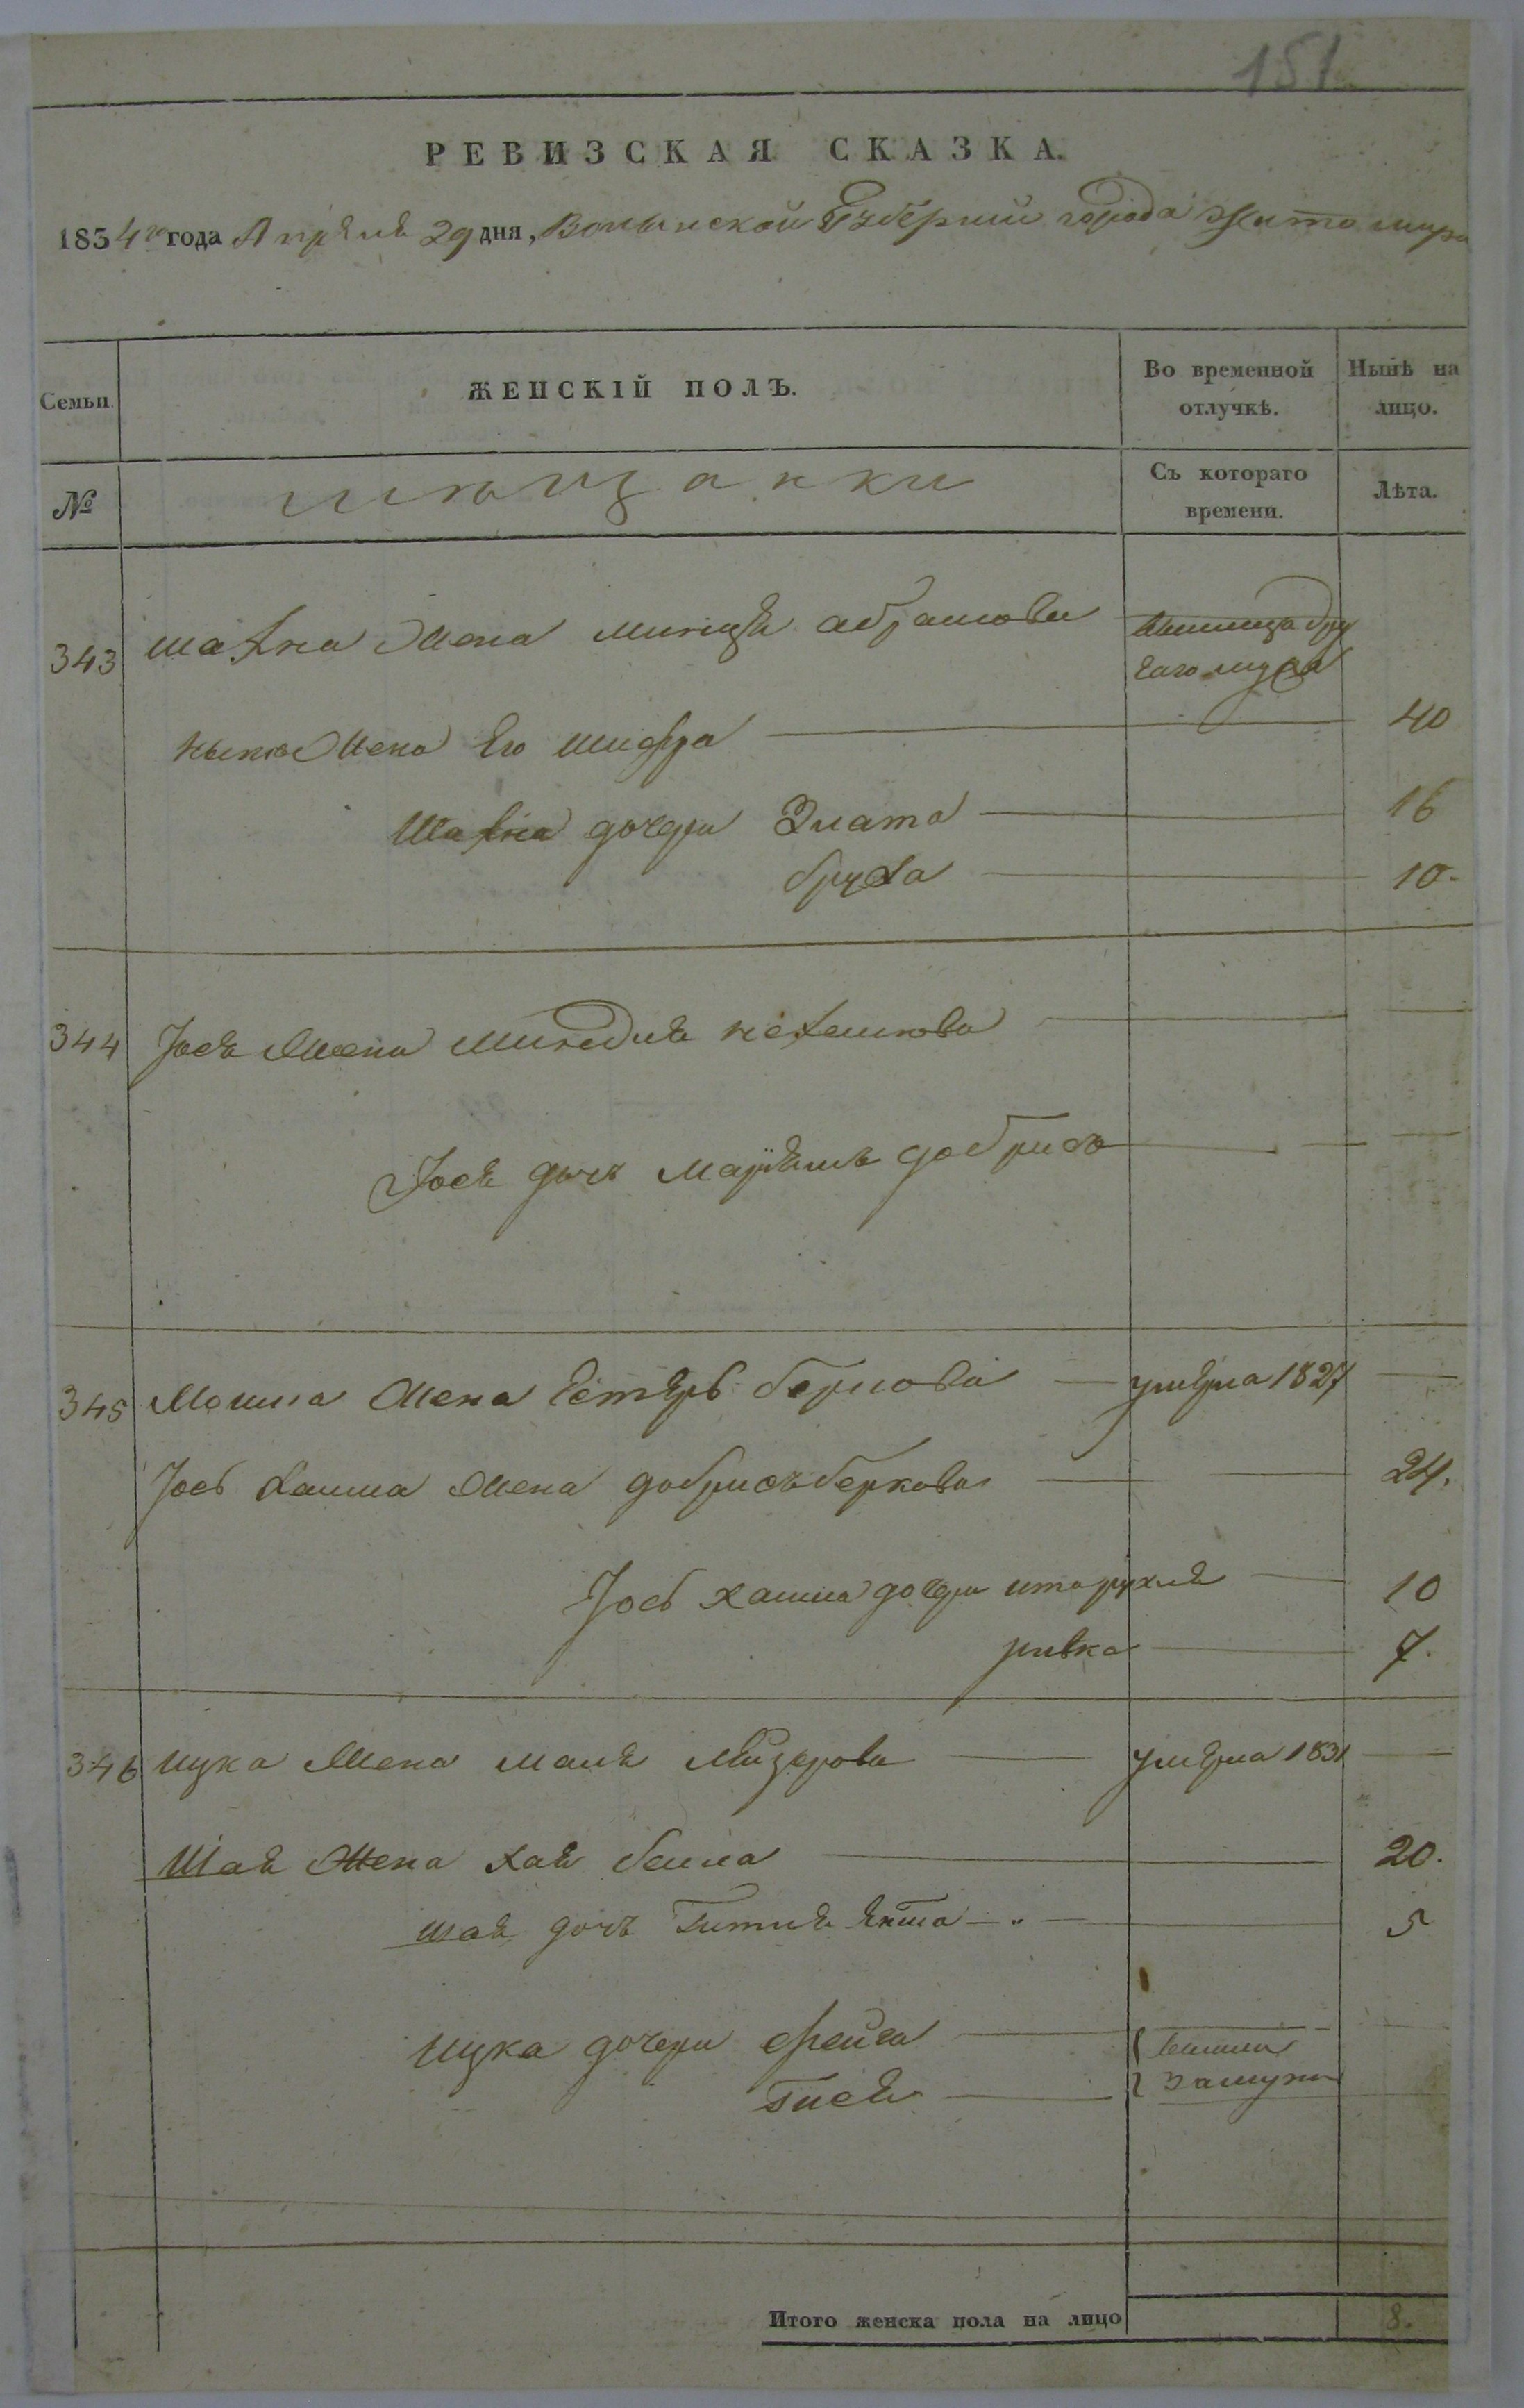 151
РЕВИЗСКАЯ СКАЗКА.
1834го года Апреля 29 дня, Волынской Губернии города Житомира
Семьи. ЖЕНСКІЙ ПОЛЪ. Во временной отлучкѣ. Нынѣ на лицо.
№ мѣщанки Съ котораго времени. Лѣта.
343 Шахна жена абрамова вышла за другаго мужа
ныне жена Его шифра 40
Шахна дочери Злата 16
бруха 10.
344 Іося жена Миндля нехемиова
Іося дочь Марьямъ добрисъ
345 Мошка жена Естеръ беркова умерла 1827
Іось хаима жена добрисъ беркова 24.
Іось хаима дочери ита рухля 10
ривка 7.
346 Ицка жена маля умерла 1831
Шая жена хая бейла 20.
шая дочь Гитля Ента 5
Ицка дочери фейга вышли
Гися замужъ
Итого женска пола на лицо 8.